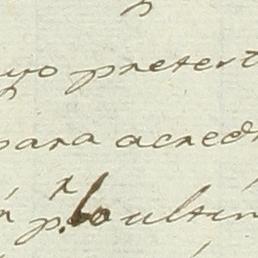 uyo pretext
para acred
n p.r lo ultim